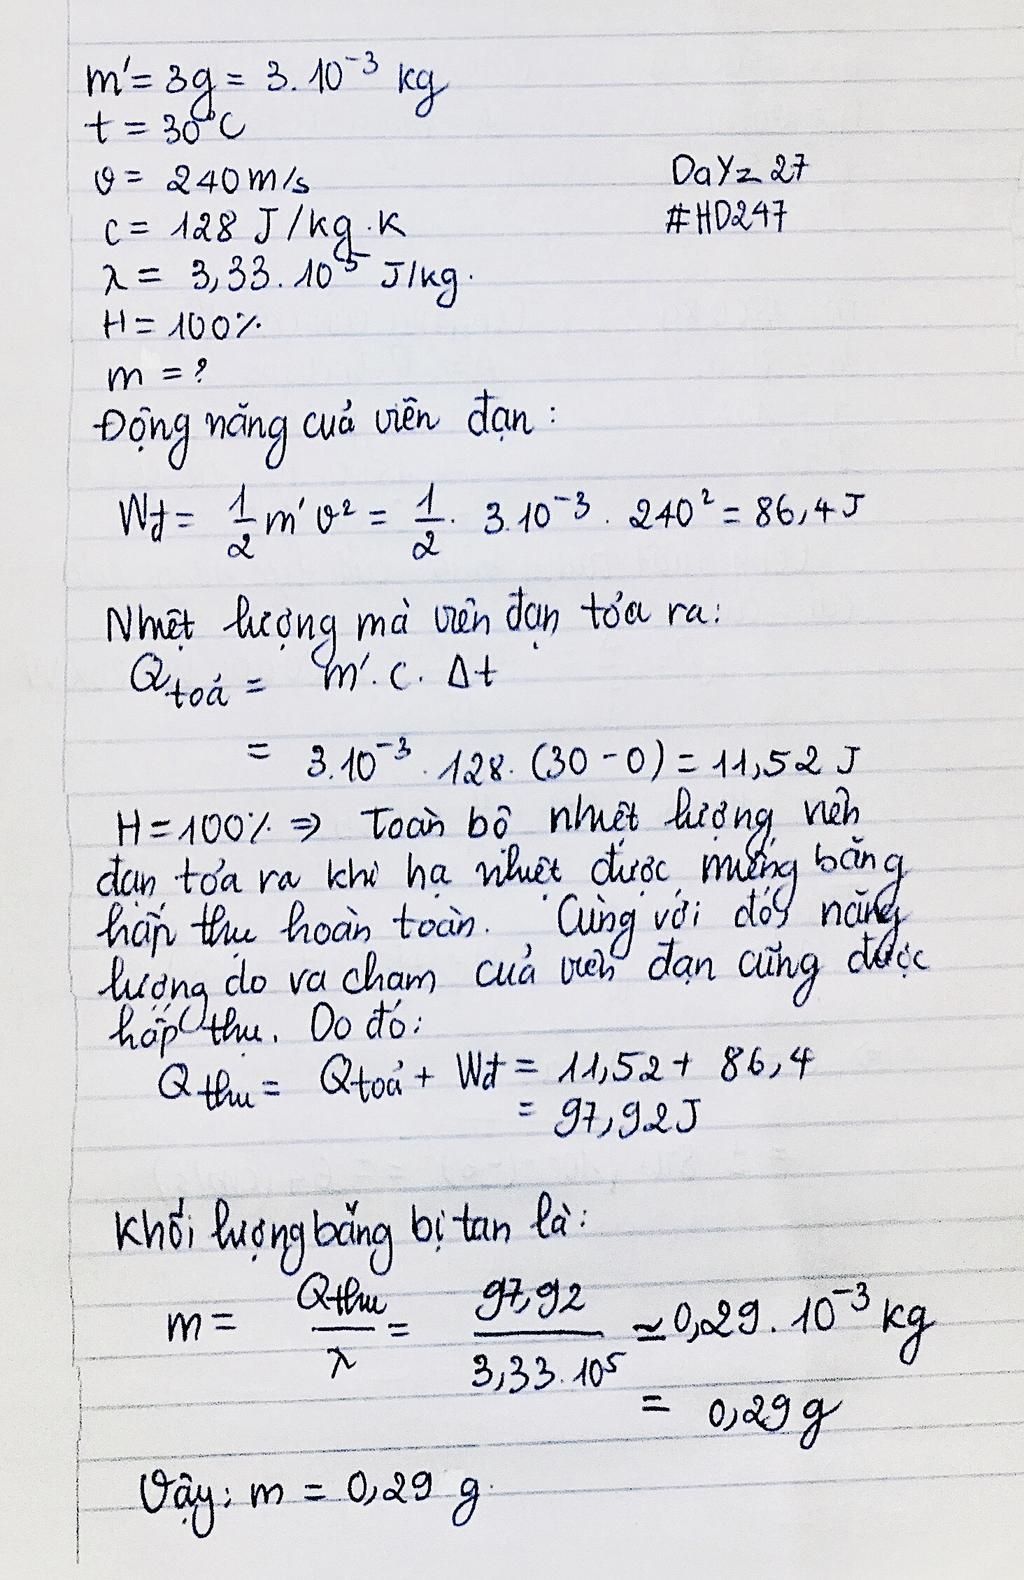 m' = 3g = 3.10⁻³ kg
t = 30°C
v = 240 m/s
DaYz 27
c = 128 J/kg.K
#HD247
λ = 3,33.10⁵ J/kg.
H = 100%
m = ?
Động năng của viên đạn:
Wđ = 1/2 m'v² = 1/2 . 3.10⁻³ . 240² = 86,4 J
Nhiệt lượng mà viên đạn tỏa ra:
Q toả = m'. c. Δt
= 3.10⁻³ . 128. (30 - 0) = 11,52 J
H = 100% ⇒ Toàn bộ nhiệt lượng viên
đạn tỏa ra khi hạ nhiệt được miếng băng
hấp thụ hoàn toàn. Cùng với đó, năng
lượng do va chạm của viên đạn cũng được
hấp thụ. Do đó:
Q thu = Q toả + Wđ = 11,52 + 86,4
= 97,92 J
Khối lượng băng bị tan là:
m = Q thu/λ = 97,92/3,33.10⁵ ≃ 0,29.10⁻³ kg
= 0,29 g
Vậy: m = 0,29 g.